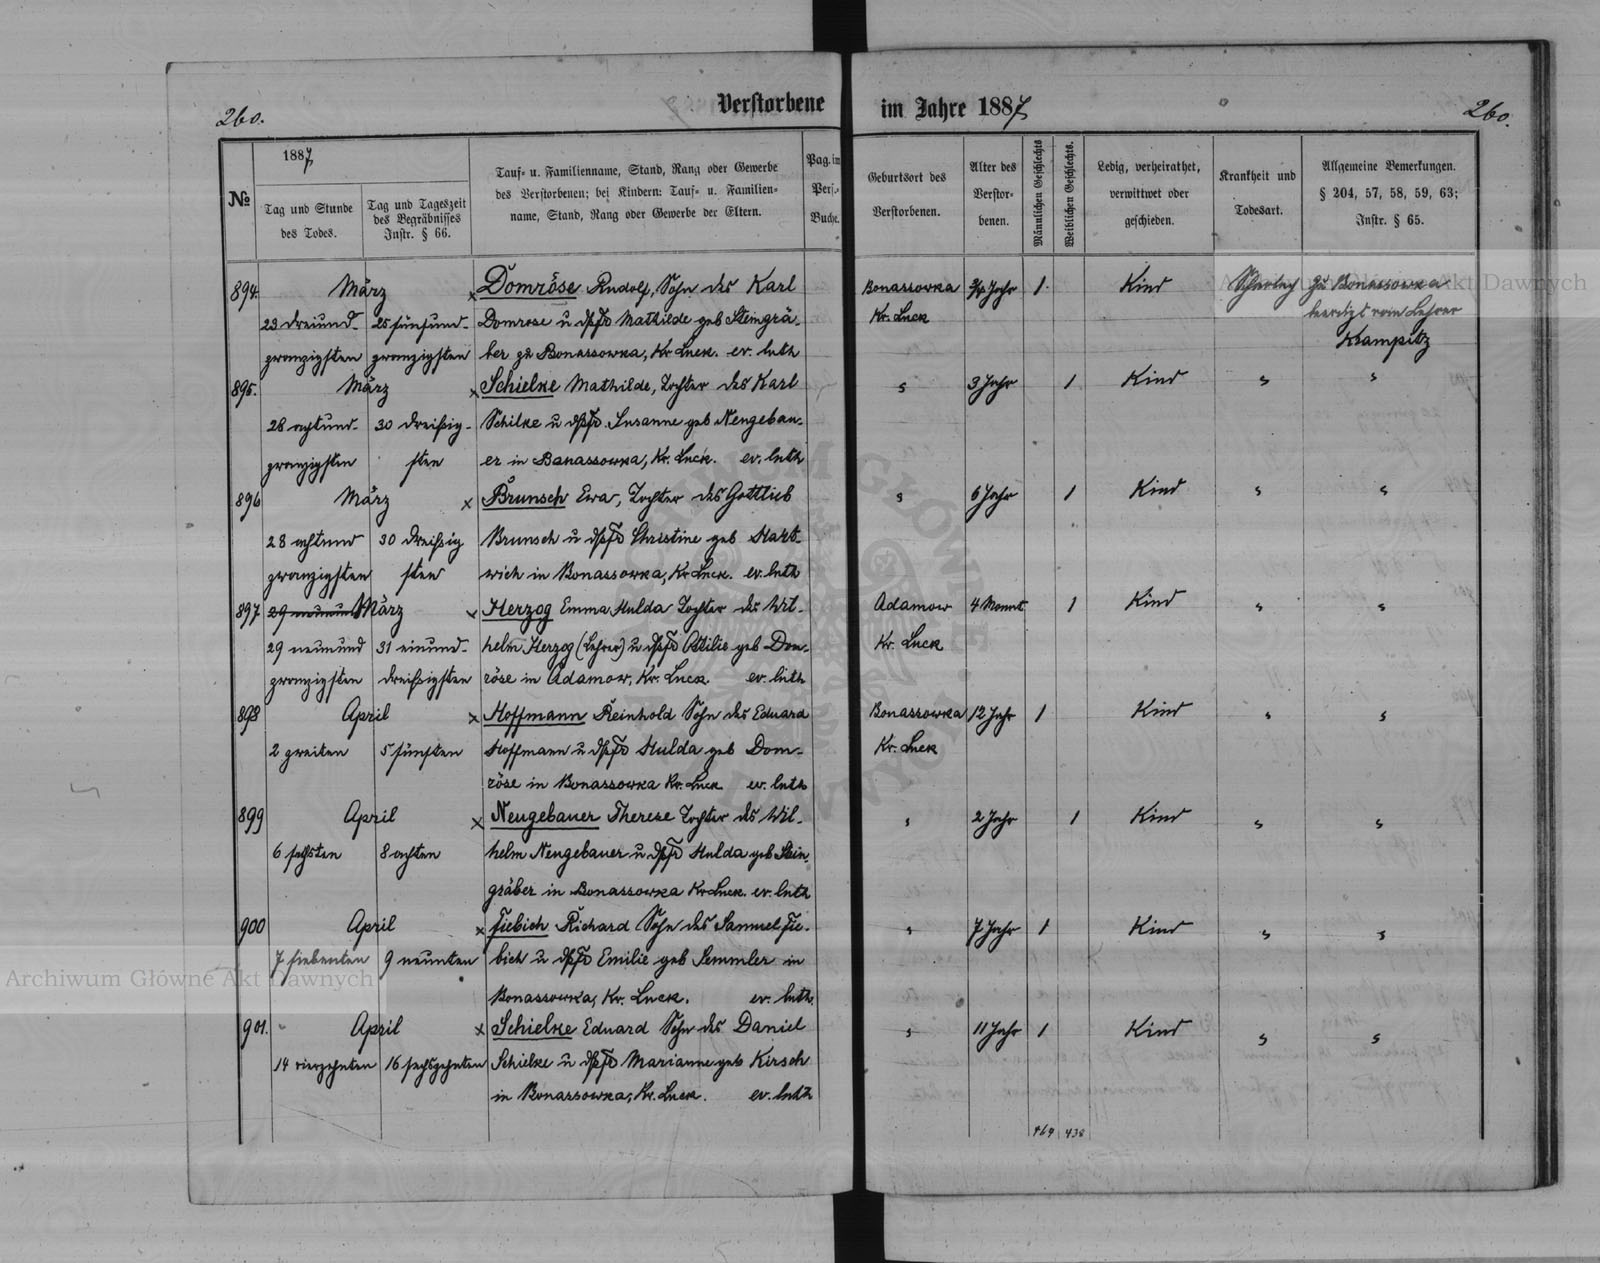 260.
Verstorbene im Jahre 1887
260.
№
1887
Tag und Stunde
des Todes.
Tag und Tageszeit
des Begräbnisses
Instr. § 66.
Tauf- u. Familienname, Stand, Rang oder Gewerbe
des Verstorbenen; bei Kindern: Tauf- u. Familien-
name, Stand, Rang oder Gewerbe der Eltern.
Pag. im
Pers.-
Buche.
Geburtsort des
Verstorbenen.
Alter des
Verstor-
benen.
Männlichen Geschlechts
Weiblichen Geschlechts.
Ledig, verheirathet,
verwittwet oder
geschieden.
Krankheit und
Todesart.
Allgemeine Bemerkungen.
§ 204, 57, 58, 59, 63;
Instr. § 65.
894. März x Domröse Rudolf, Sohn des Karl Bonassowka 3/4 Jahr 1. Kind Scharlach zu Bonassowka
23 dreiund- 25 fünfund- Domrose u dßfr Mathilde geb Steingrä- Kr. Luck beerdigt vom Lehrer
zwanzigsten zwanzigsten ber zu Bonassowka, Kr. Luck. ev. luth Krampitz
895. März x Schielke Mathilde, Tochter des Karl s 3 Jahr 1 Kind s s
28 achtund- 30 dreißig- Schilke u dßfr. Susanne geb Neugebau-
zwanzigsten sten er in Banassowka, Kr. Luck. ev. luth
896 März x Brunsch Ewa, Tochter des Gottlieb s 6 Jahr 1 Kind s s
28 achtund 30 dreißig Brunsch u dßfr Christine geb Hart-
zwanzigsten sten wich in Bonassowka, Kr. Luck. ev. luth
897 29 neunund März x Herzog Emma Hulda Tochter des Wil- Adamow 4 Monat 1 Kind s s
29 neunund 31 einund- helm Herzog (Lehrer) u dßfr Ottilie geb Dom- Kr. Luck
zwanzigsten dreißigsten röse in Adamow, Kr. Luck. ev. luth
898 April x Hoffmann Reinhold Sohn des Eduard Bonassowka 12 Jahr 1 Kind s s
2 zweiten 5 fünften Hoffmann u dßfr Hulda geb Dom- Kr. Luck
röse in Bonassowka Kr. Luck. ev. luth
899 April x Neugebauer Therese Tochter des Wil- s 2 Jahr 1 Kind s s
6 sechsten 8 achten helm Neugebauer u dßfr Hulda geb Stein-
gräber in Bonassowka Kr Luck. ev. luth
900 April x Fiebich Richard Sohn des Samuel Fie- s 7 Jahr 1 Kind s s
7 siebenten 9 neunten bich u dßfr Emilie geb Semmler in
Bonassowka, Kr. Luck. ev. luth.
901. April x Schielke Eduard Sohn des Daniel s 11 Jahr 1 Kind s s
14 vierzehnten 16 sechszehnten Schielke u dßfr Marianne geb Kirsch
in Bonassowka, Kr. Luck. ev. luth
464 438
Archiwum Główne Akt Dawnych
Archiwum Główne Akt Dawnych